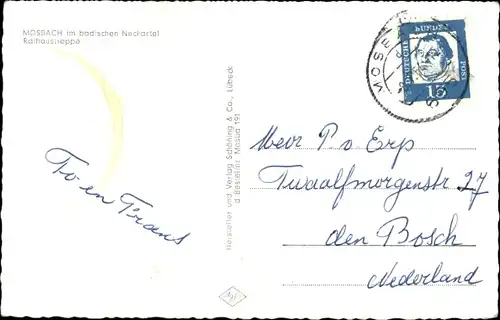 MOSBACH im badischen Neckartal
Rathaustreppe
To en Frans
Hersteller und Verlag Schöning & Co., Lübeck
DEUTSCHE
BUNDES
POST
15
Mevr P v Erp
Twaalfmorgenstr 27
den Bosch
Nederland